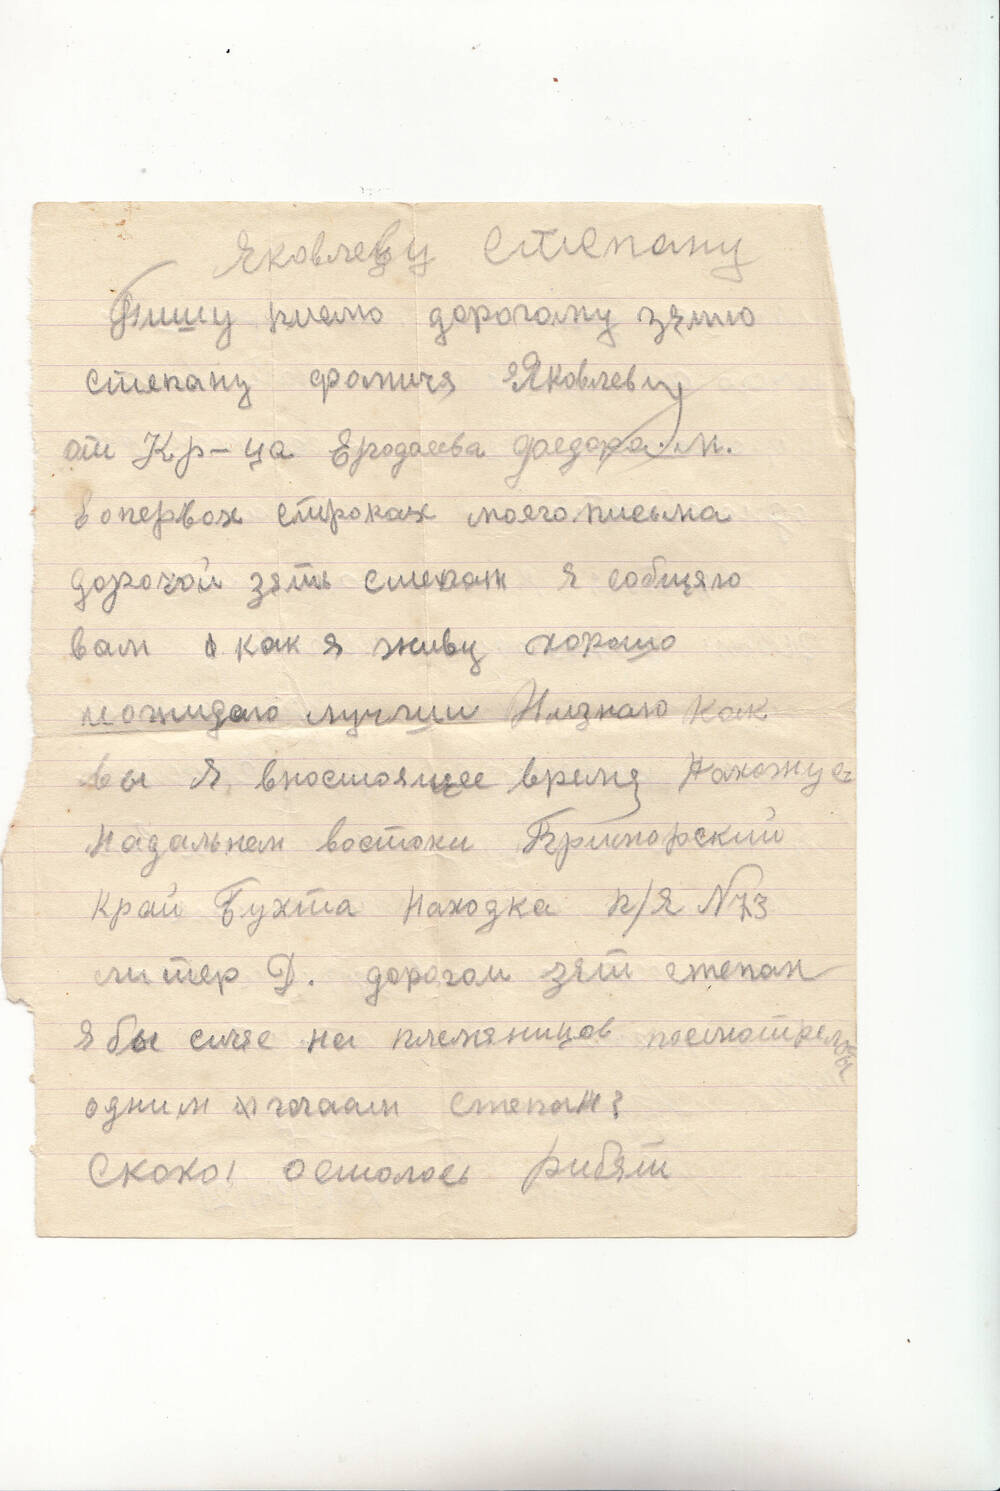 Яковлеву Степану
Пишу писмо дорогому зятю
степану фомичя Яковлеву
от Кр-ца Ергодаева Федора. м.
вопервох строках моего писма
дорогой зять степан я собщяю
вам как я живу хорошо
иожидаю лучши Низнаю как
вы Я вностоящее время Нахожус
Надальнем востоки Приморский
край Бухта Находка п/я N73
литер Д. дорогой зят степан
я бы счяс на племяницов посмотрел бы
одним глочаам степан
скоко осталось рибят